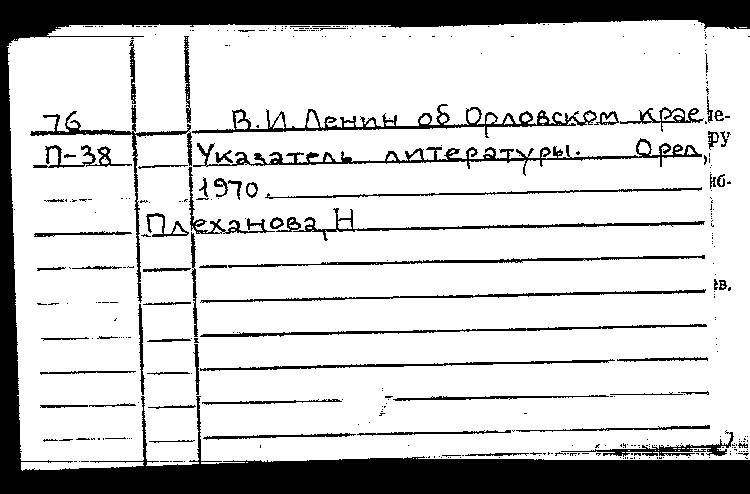 76 В.И. Ленин об Орловском крае
П-38 Указатель литературы. Орел,
1970.
Плеханова, Н